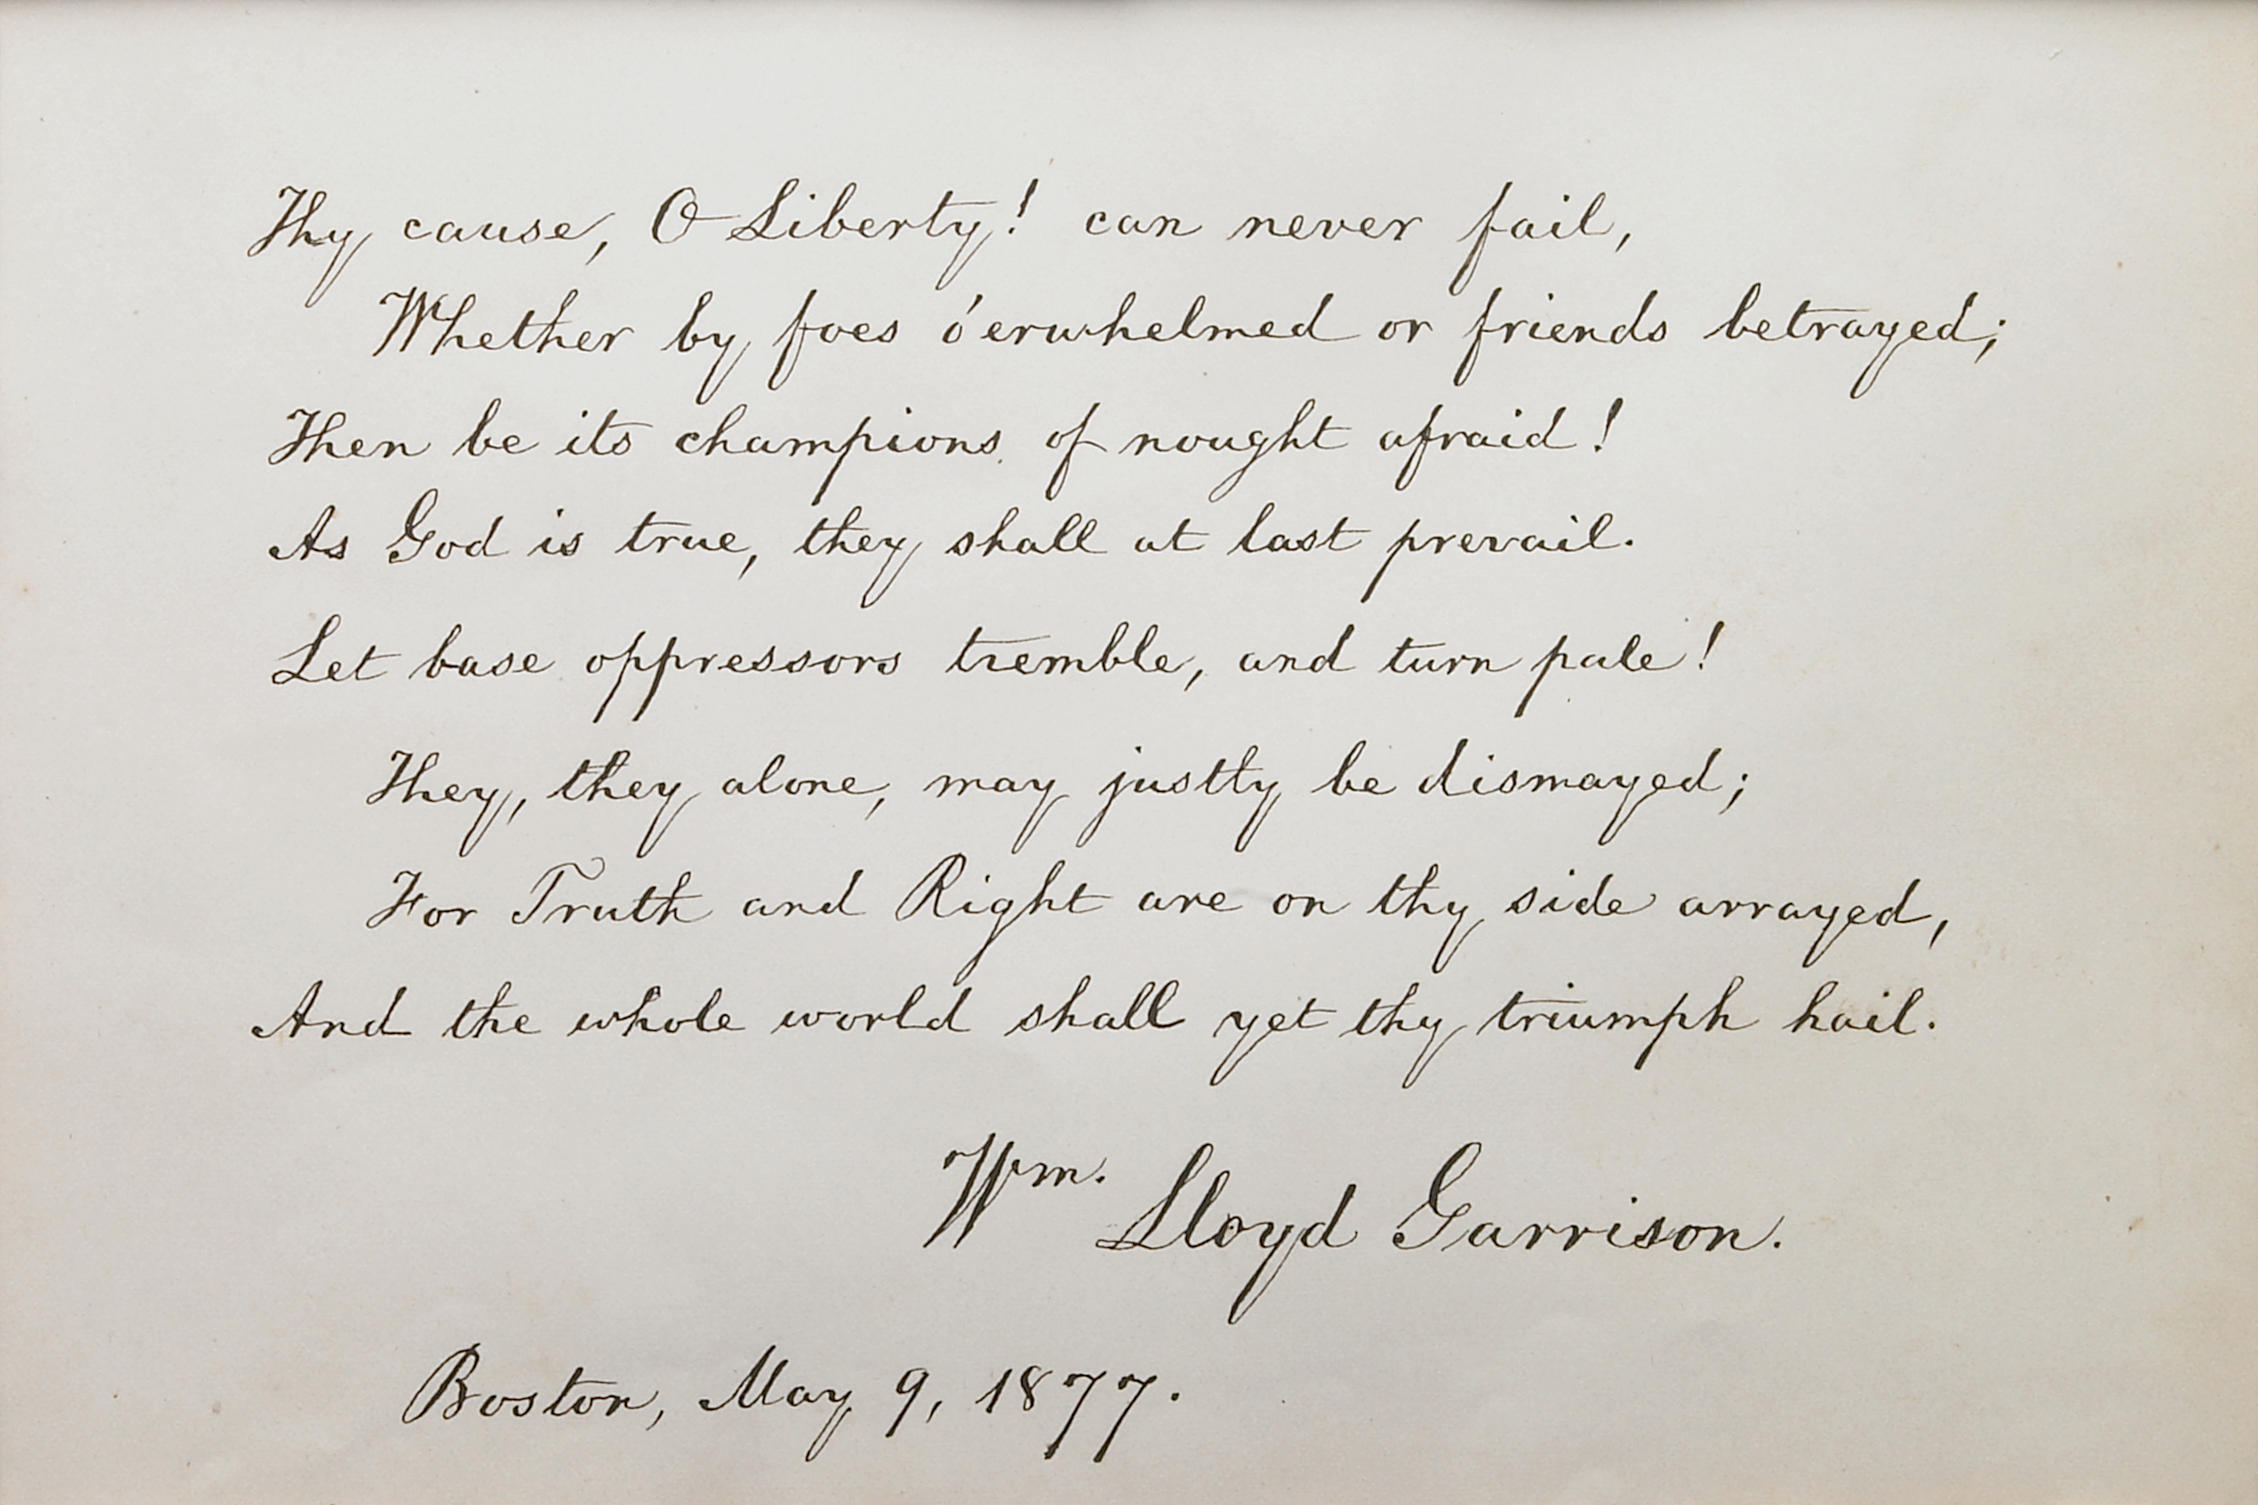 Thy cause, O Liberty! can never fail,
Whether by foes o'erwhelmed or friends betrayed;
Then be its champions of nought afraid!
As God is true, they shall at last prevail.
Let base oppressors tremble, and turn pale!
They, they alone, may justly be dismayed;
For Truth and Right are on thy side arrayed,
And the whole world shall yet thy triumph hail.
Wm. Lloyd Garrison.
Boston, May 9, 1877.